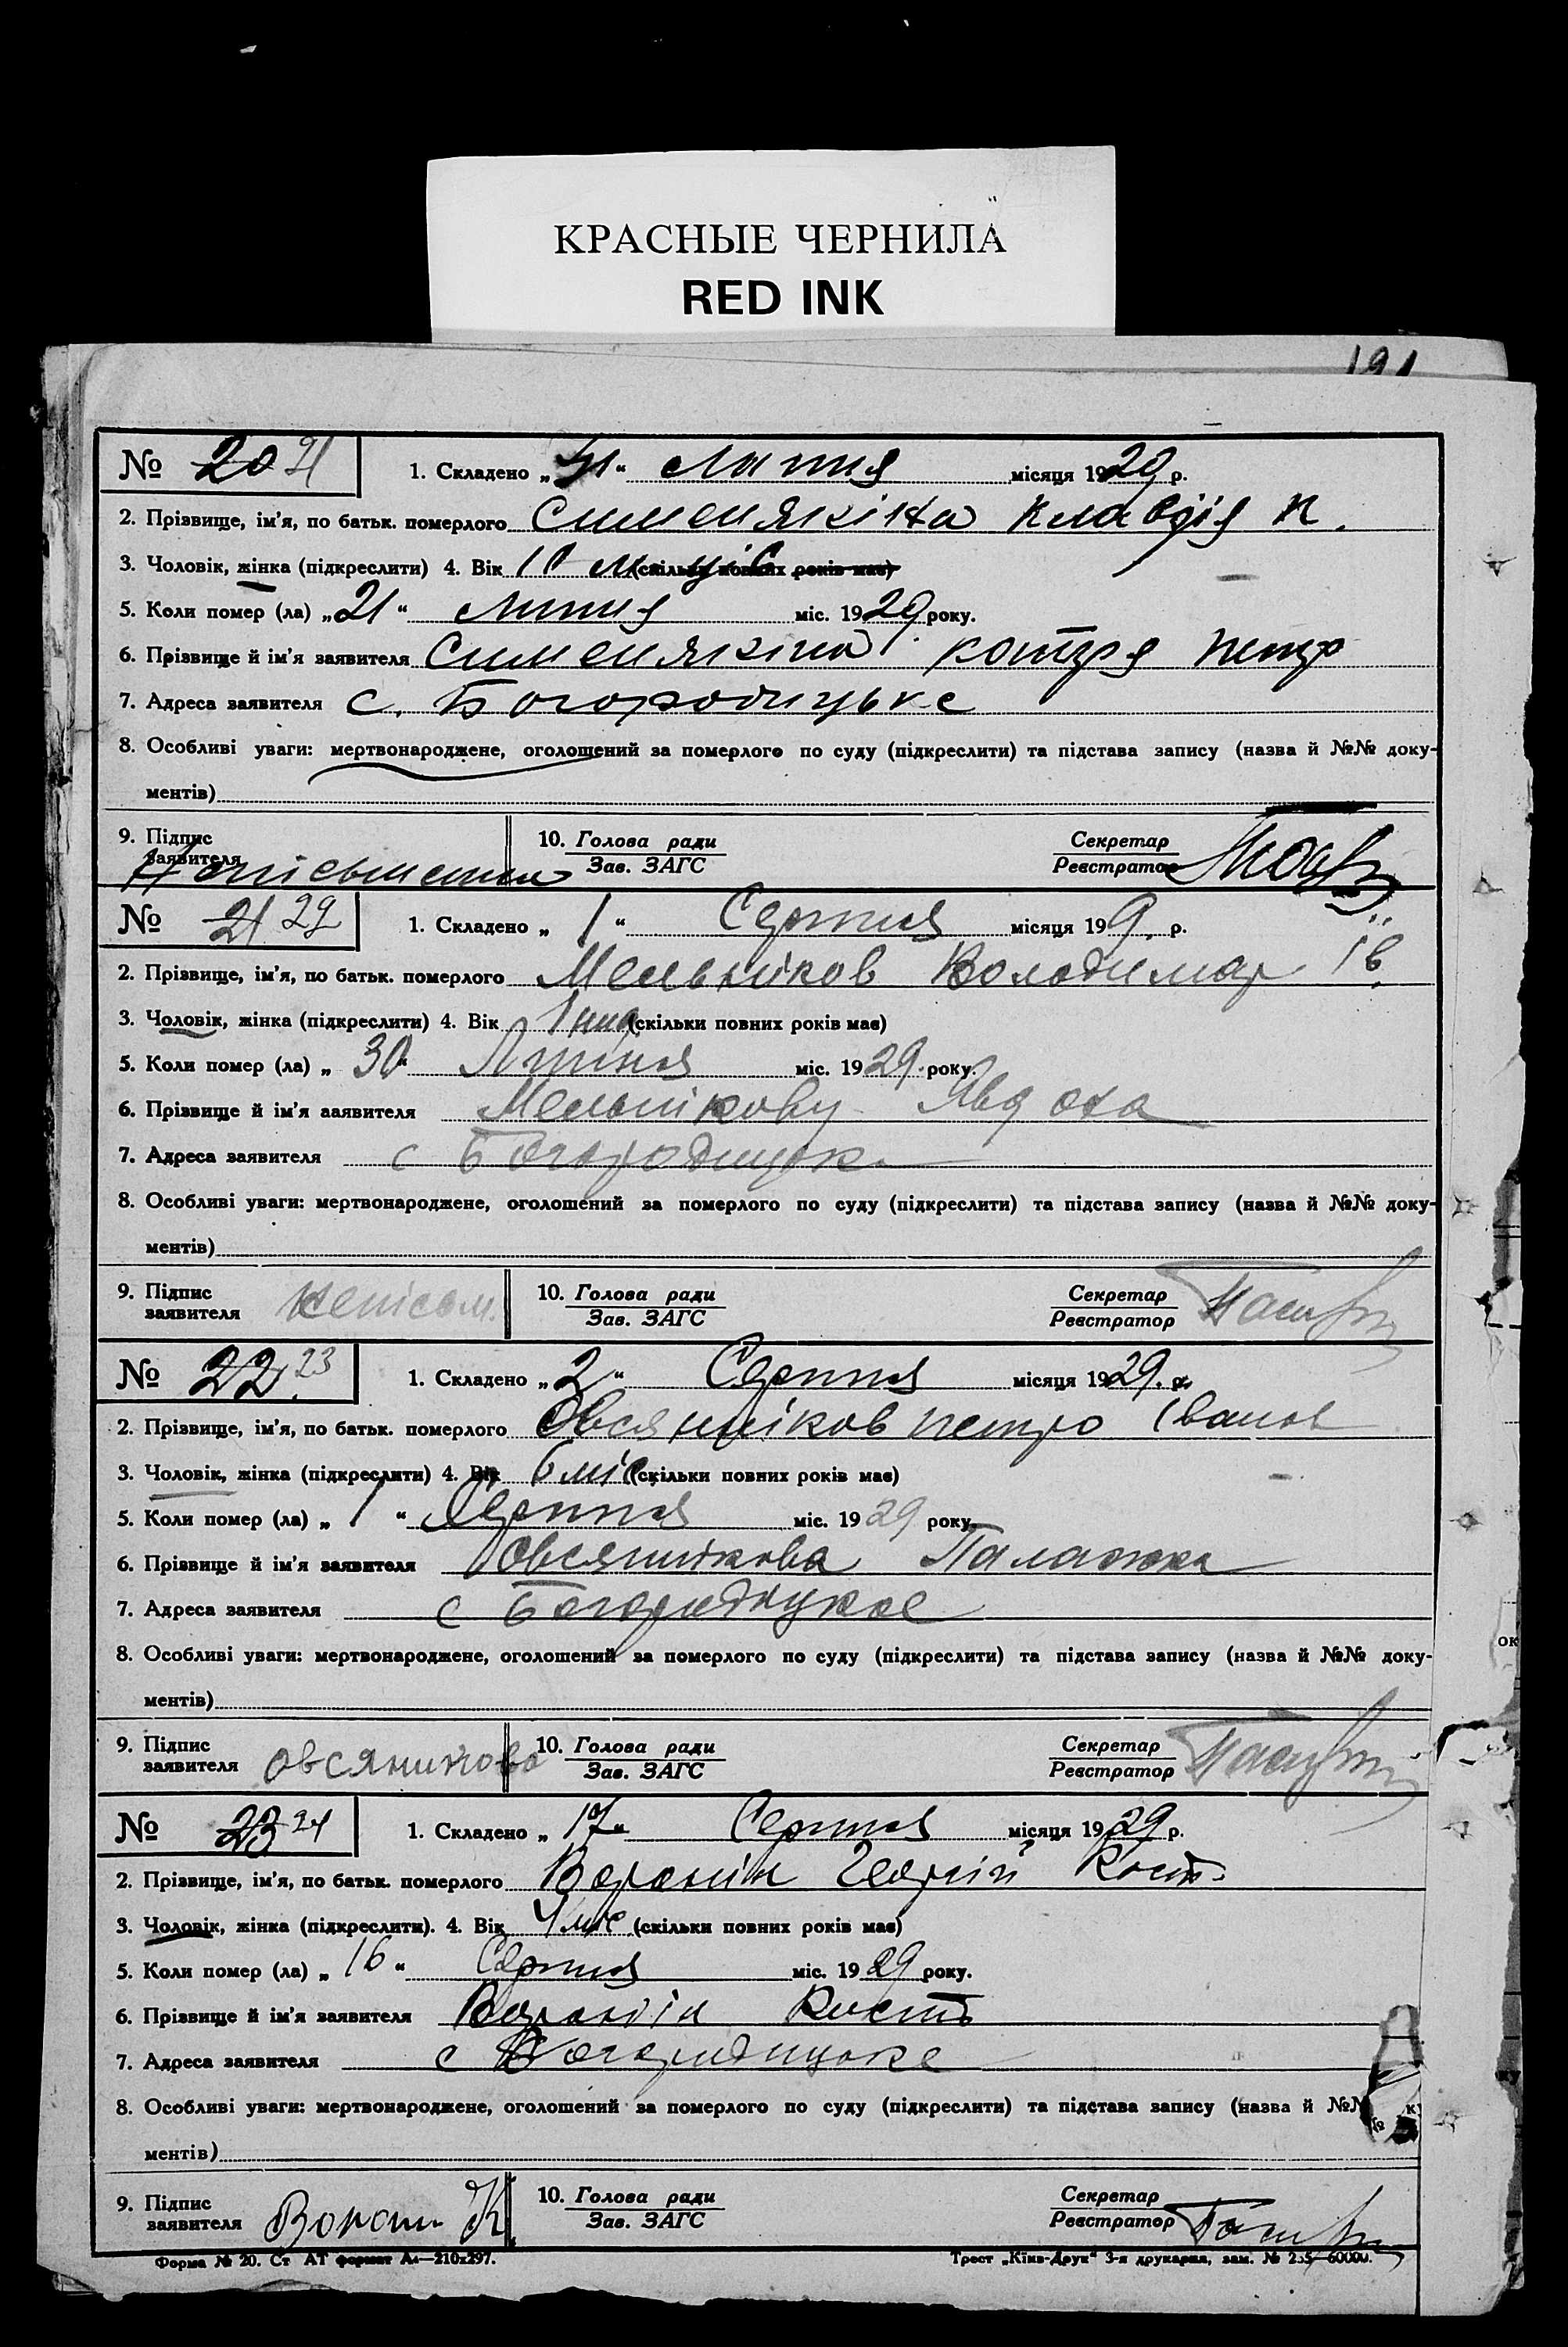 КРАСНЫЕ ЧЕРНИЛА
RED INK
191
№ 20 21 1. Складено „ “ Липня місяця 1929 р.
2. Прізвище, ім'я, по батьк. померлого Клавдія П.
3. Чоловік, жінка (підкреслити) 4. Вік 10 м-ців (скільки повних років має)
5. Коли помер (ла) „21“ Липня міс. 1929 року.
6. Прізвище й ім'я заявителя Петро
7. Адреса заявителя с. Богородицьке
8. Особливі уваги: мертвонароджене, оголошений за померлого по суду (підкреслити) та підстава запису (назва й №№ доку-
ментів)
9. Підпис заявителя Неписьменна 10. Голова ради Зав. ЗАГС Секретар Реєстратор
№ 21 22 1. Складено „1“ Серпня місяця 199 р.
2. Прізвище, ім'я, по батьк. померлого Мельніков Володимар Ів.
3. Чоловік, жінка (підкреслити) 4. Вік 1 (скільки повних років має)
5. Коли помер (ла) „30“ Липня міс. 1929 року.
6. Прізвище й ім'я заявителя Мельнікову Явдоха
7. Адреса заявителя с Богородицьке
8. Особливі уваги: мертвонароджене, оголошений за померлого по суду (підкреслити) та підстава запису (назва й №№ доку-
ментів)
9. Підпис заявителя неписьм. 10. Голова ради Зав. ЗАГС Секретар Реєстратор
№ 22 23 1. Складено „2“ Серпня місяця 1929 р.
2. Прізвище, ім'я, по батьк. померлого Овсянніков Петро Іванов
3. Чоловік, жінка (підкреслити) 4. Вік 6 міс. (скільки повних років має)
5. Коли помер (ла) „1“ Серпня міс. 1929 року.
6. Прізвище й ім'я заявителя Овсяннікова Палажка
7. Адреса заявителя с Богородицкое
8. Особливі уваги: мертвонароджене, оголошений за померлого по суду (підкреслити) та підстава запису (назва й №№ доку-
ментів)
9. Підпис заявителя Овсяникова 10. Голова ради Зав. ЗАГС Секретар Реєстратор
№ 23 24 1. Складено „17“ Серпня місяця 1929 р.
2. Прізвище, ім'я, по батьк. померлого Воронін Георгій Кост.
3. Чоловік, жінка (підкреслити). 4. Вік 4 міс (скільки повних років має)
5. Коли помер (ла) „16“ Серпня міс. 1929 року.
6. Прізвище й ім'я заявителя Воронін Кость
7. Адреса заявителя с Богородицьке
8. Особливі уваги: мертвонароджене, оголошений за померлого по суду (підкреслити) та підстава запису (назва й №№
ментів)
9. Підпис заявителя К. 10. Голова ради Зав. ЗАГС Секретар Реєстратор
Форма № 20. Ст АТ формат А4—210х297. Трест „Київ-Друк“ 3-я друкарня, зам. № 255/60000.